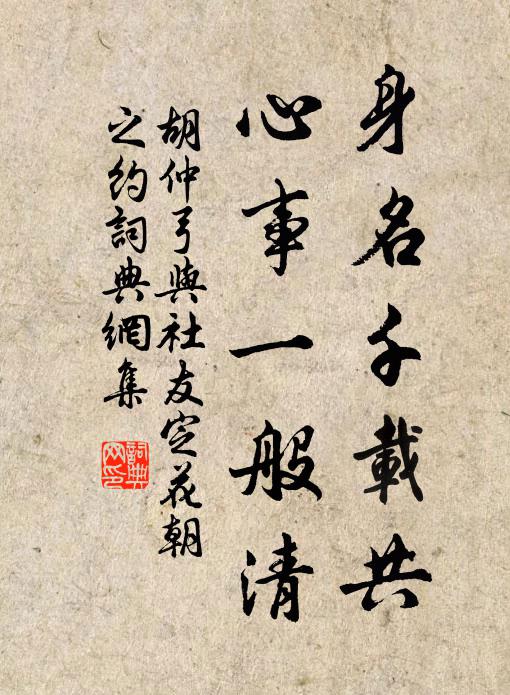 身名千載共
心事一般清
胡仲弓與社友定花朝
之約詞典網集
詞典
网印